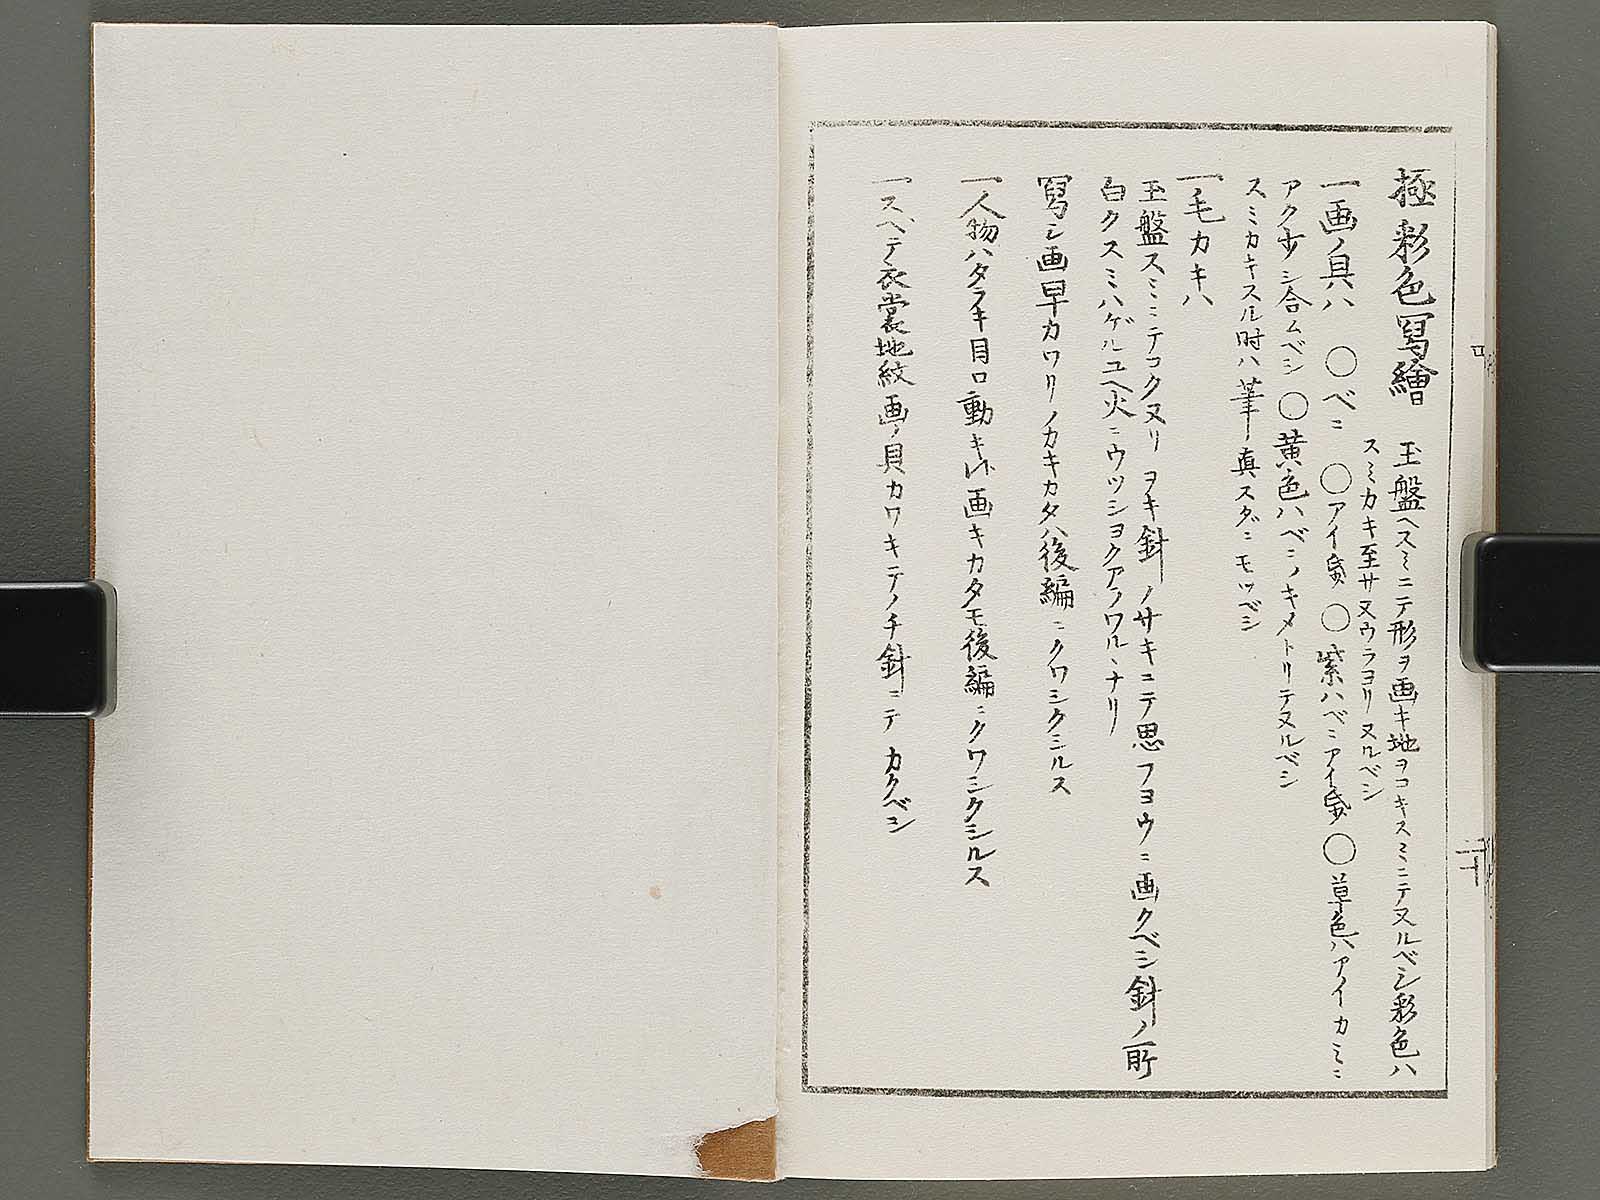 極彩色寫繪
玉盤ヘスミニテ形ヲ画キ地ヲコキスミニテヌルベシ彩色ハ
スミカキ至サヌウラヨリヌルベシ
一画ノ具ハ ○ベニ ○アイ ○紫ハベニアイ ○草色ハアイカミニ
アク少シ合ムベシ ○黄色ハベニノキメトリテヌルベシ
スミカキスル時ハ筆ノ真スグニモツベシ
一毛カキハ
玉盤スミニテコクヌリヲキ針ノサキニテ思フヨウニ画クベシ針ノ所
白クスミハゲルユヘ火ニウツシヨクアラワルヽナリ
寫シ画早カワリノカキカタハ後編ニクワシクシルス
一人物ハタラキ目口動キ画キカタモ後編ニクワシクシルス
一スベテ衣裳地紋画ノ具カワキテノチ針ニテカクベシ